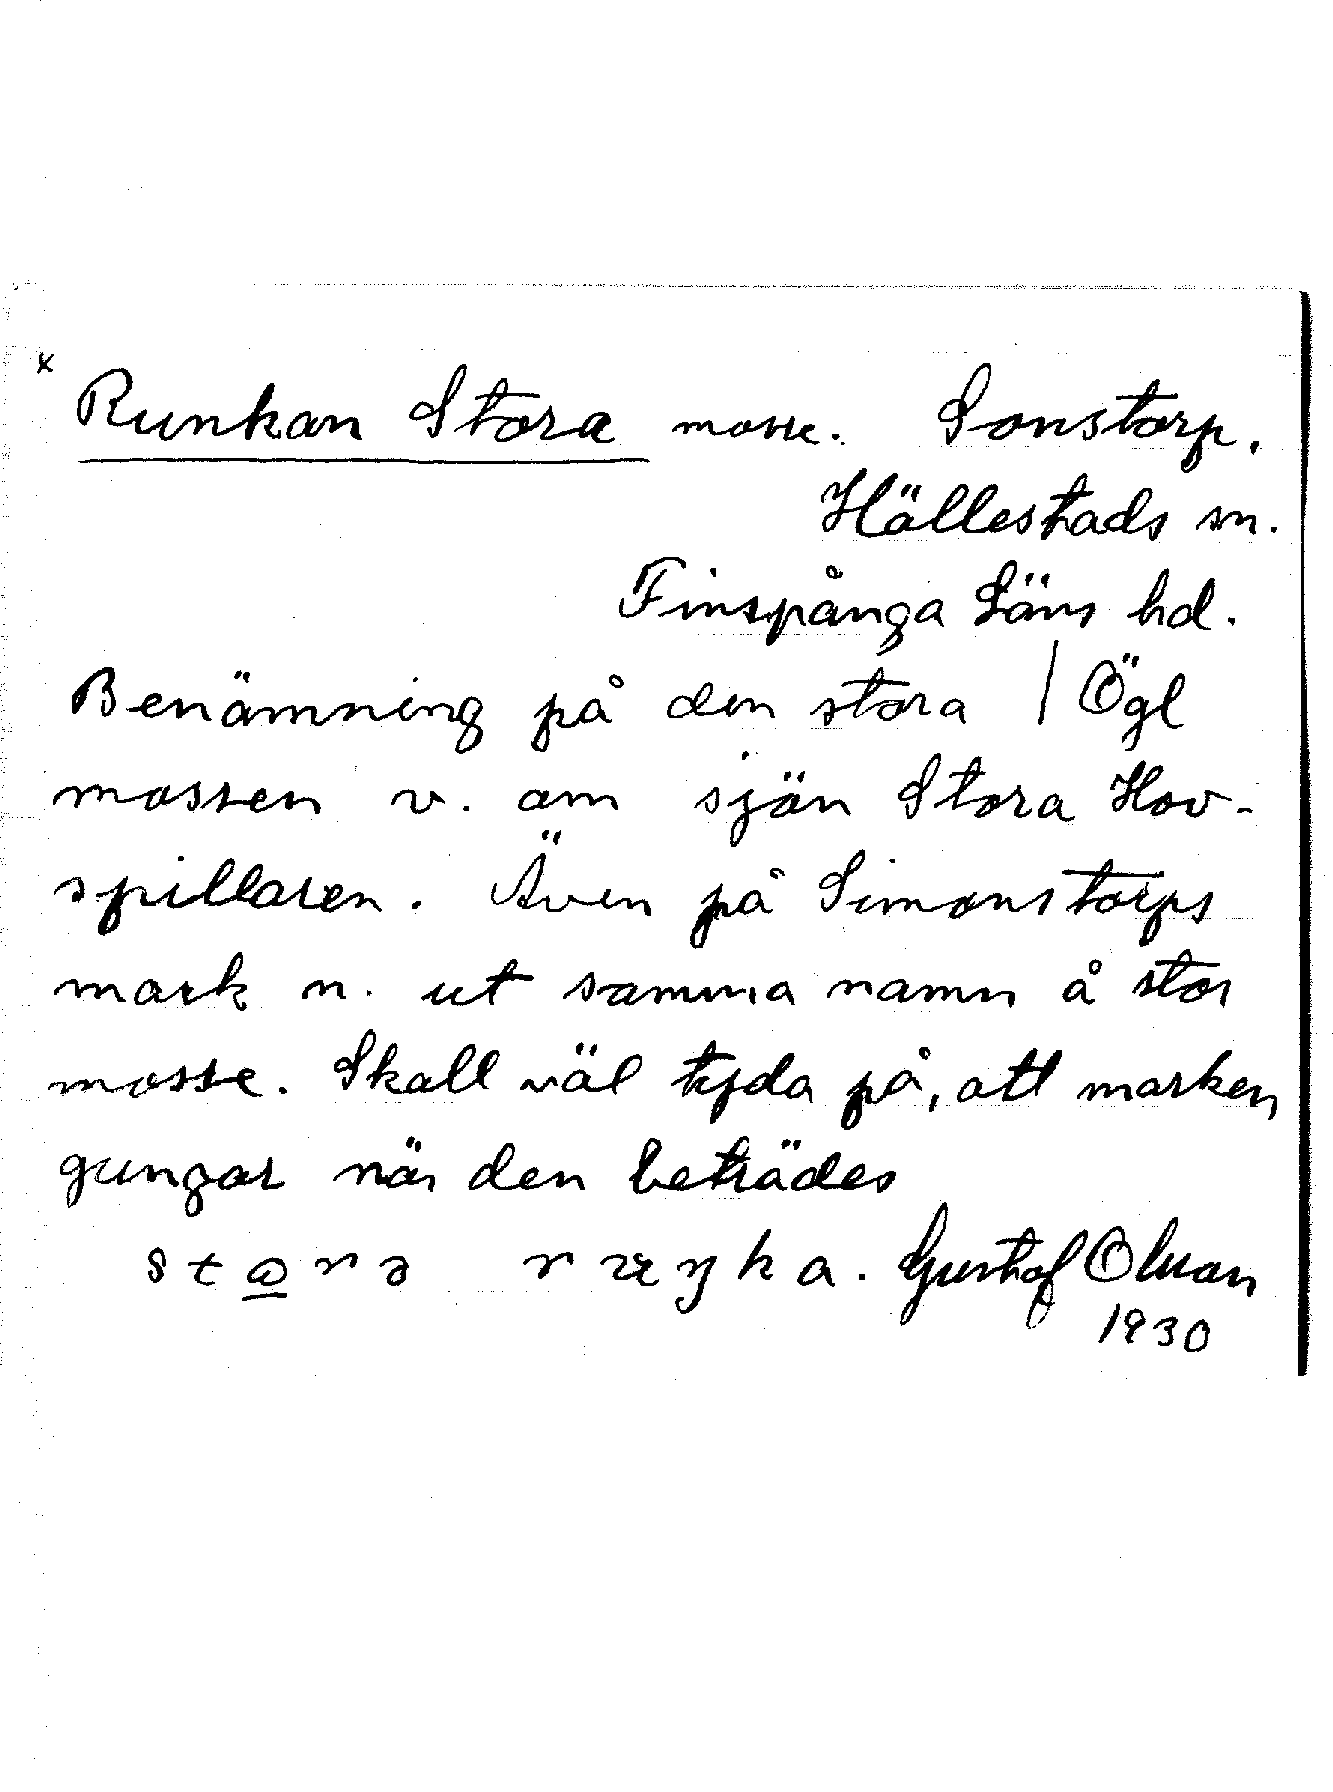 x Runkan Stora mosse. Sonstorp.
Hällestads sn.
Finspånga Läns hd.
Benämning på den stora / Ögl
mossen v. om sjön Stora Hov-
spillaren. Även på Simonstorps
mark n. ut samma namn å stor
mosse. Skall väl tyda på, att marken
gungar när den beträdes
Gustaf Olsson
1930